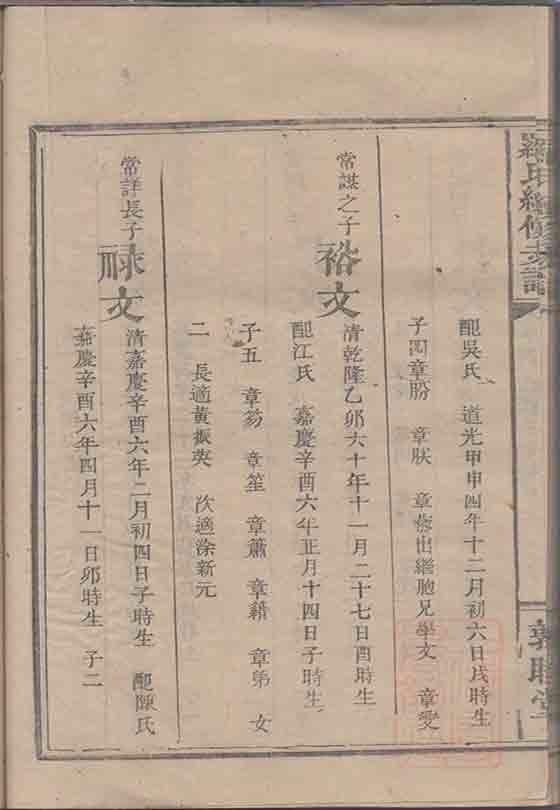 羅氏續修支譜
敦睦堂
配吳氏 道光甲申四年十二月初六日戌時生
子四章勝 章狀 章 出繼胞兄學文 章雯
常謀之子
裕文
清乾隆乙卯六十年十一月二十七日酉時生
配江氏 嘉慶辛酉六年正月十四日子時生
子五 章芴 章笙 章蕭 章藉 章第 女
二 長適黃振英 次適涂新元
常詳長子
祿文
清嘉慶辛酉六年二月初四日子時生 配陳氏
嘉慶辛酉六年四月十一日卯時生 子二